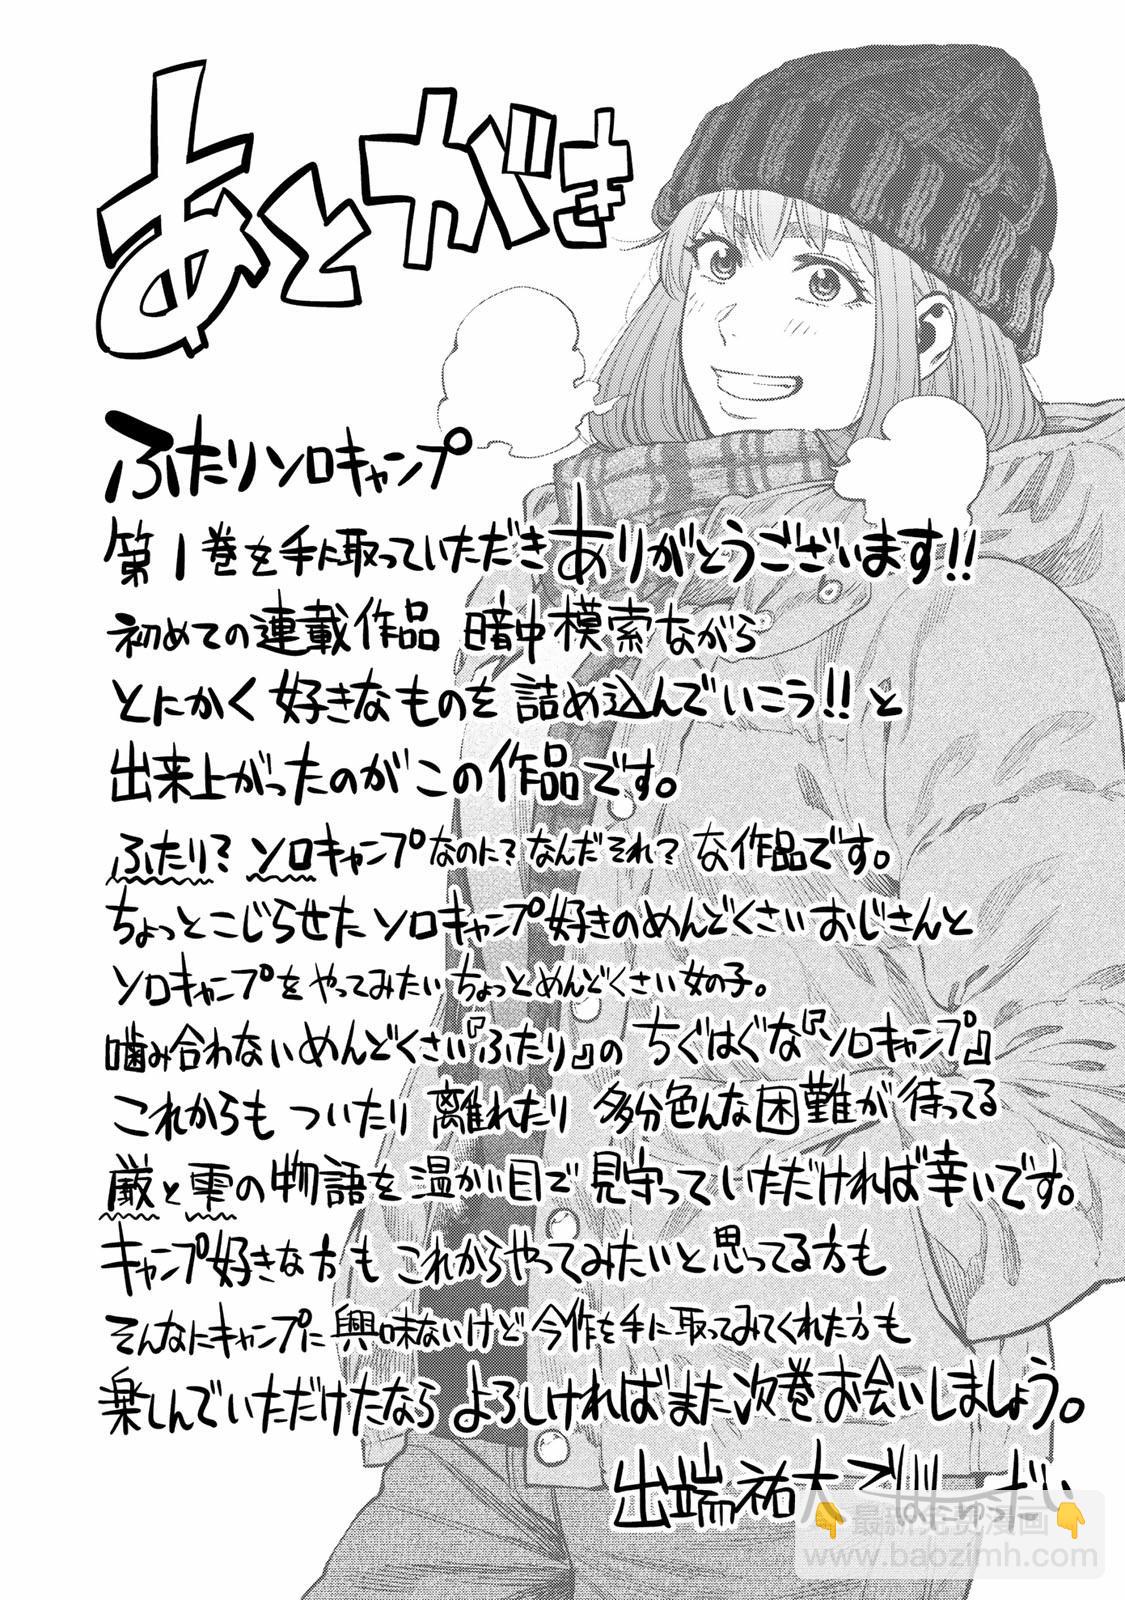 あとがき
ふたりソロキャンプ
第1巻を手に取っていただきありがとうございます!!
初めての連載作品 暗中模索ながら
とにかく好きなものを詰め込んでいこう!!と
出来上がったのがこの作品です。
ふたり？ソロキャンプなのに？なんだそれ？な作品です。
ちょっとこじらせたソロキャンプ好きのめんどくさいおじさんと
ソロキャンプをやってみたいちょっとめんどくさい女の子。
噛み合わないめんどくさい『ふたり』のちぐはぐな『ソロキャンプ』
これからもついたり離れたり多分色んな困難が待ってる
厳と雫の物語を温かい目で見守っていただければ幸いです。
キャンプ好きな方もこれからやってみたいと思ってる方も
そんなにキャンプに興味ないけど今作を手に取ってみてくれた方も
楽しんでいただけたならよろしければまた次巻お会いしましょう。
出端祐大
最新免费漫画
www.baozimh.com